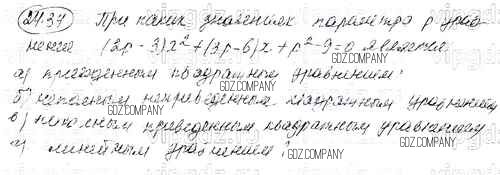 24.34 При каких значениях параметра р урав-
нение (2р - 3)x² + (3р - 6)x + р² - 9 = 0 является
а) приведенным квадратным уравнением;
б) неполным неприведенным квадратным уравнением
в) неполным приведенным квадратным уравнением
г) линейным уравнением?
GDZ.COMPANY
GDZ.COMPANY
GDZ.COMPANY
GDZ.COMPANY
GDZ.COMPANY
GDZ.COMPANY
GDZ.COMPANY